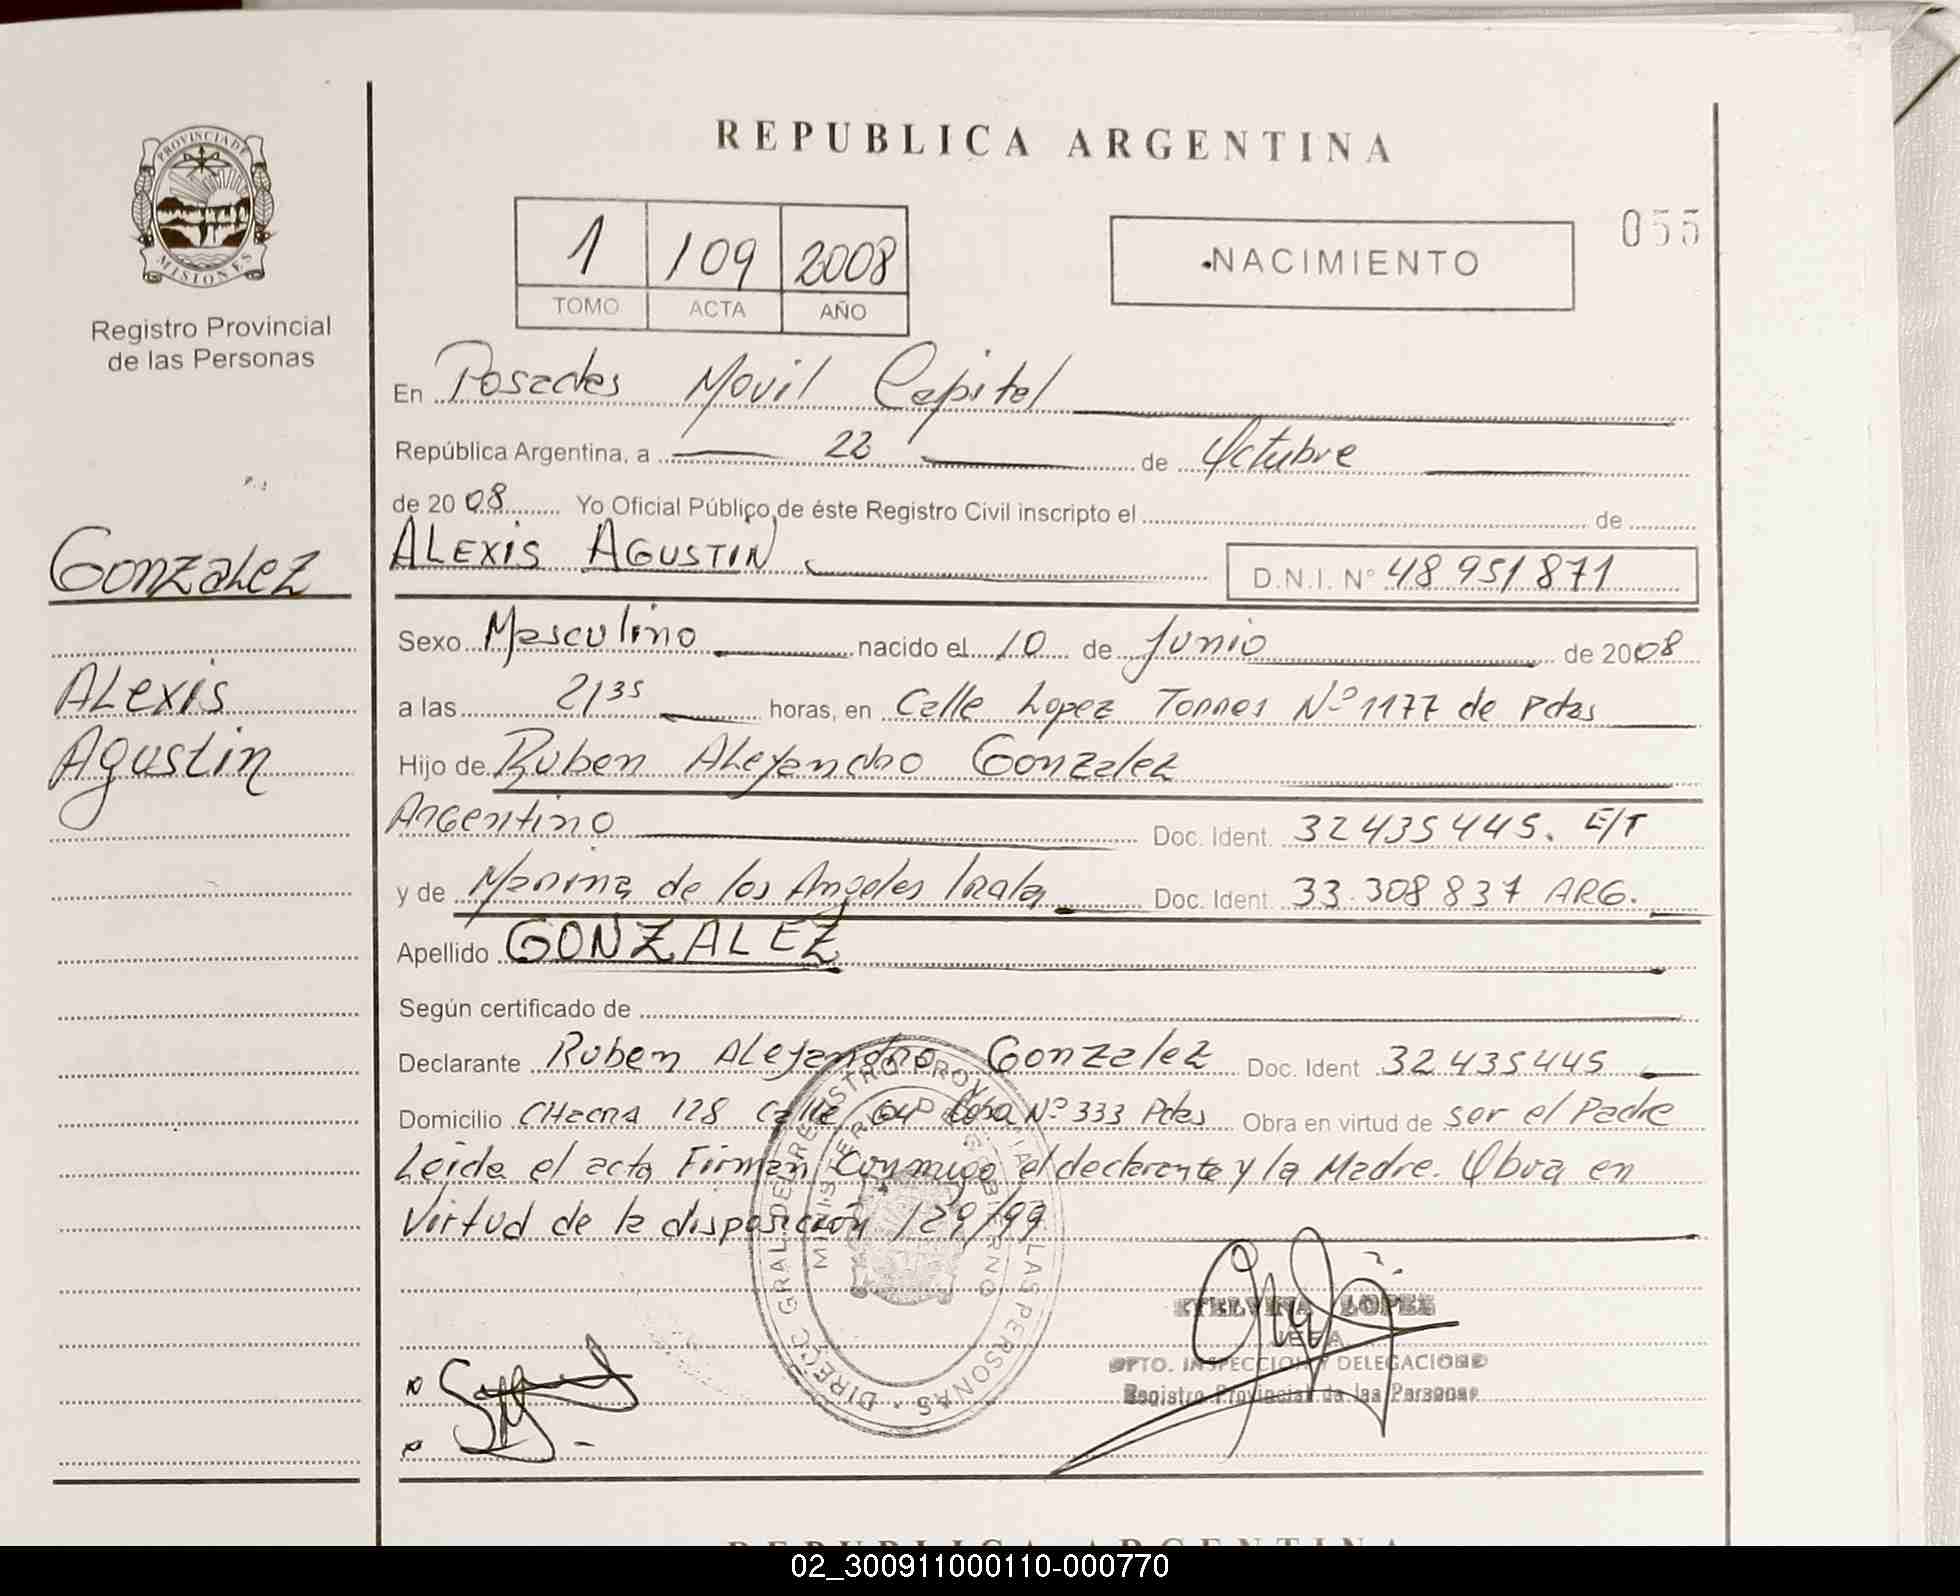 REPUBLICA ARGENTINA
PROVINCIA DE
MISIONES
Registro Provincial
de las Personas
1 109 2008
TOMO ACTA AÑO
NACIMIENTO
055
En Posadas Movil Capital
República Argentina, a 22 de Octubre
de 2008 Yo Oficial Público de éste Registro Civil inscripto el de
Gonzalez
Alexis
Agustin
ALEXIS AGUSTIN
D.N.I. Nº 48951871
Sexo Masculino nacido el 10 de Junio de 2008
a las 21 35 horas, en Calle Lopez Torres Nº 1177 de Pdas
Hijo de Ruben Alejandro Gonzalez
Argentino Doc. Ident. 32435445. E/T
y de Marina de los Angeles Irala Doc. Ident. 33.308837 ARG.
Apellido GONZALEZ
Según certificado de
Declarante Ruben Alejandro Gonzalez Doc. Ident 32435445
Domicilio CHacra 128 Calle Nº 333 Pdas Obra en virtud de ser el Padre
Leida el acta Firman Conmigo el declarante y la Madre. Obra en
Virtud de la disposición 129/99
DIREC. GRAL. DEL REGISTRO PROVINCIAL DE LAS PERSONAS
MINISTERIO DE GOBIERNO
ETELVINA LOPEZ
JEFA
DPTO. INSPECCION Y DELEGACIONES
Registro Provincial de las Personas
REPUBLICA ARGENTINA
02_300911000110-000770